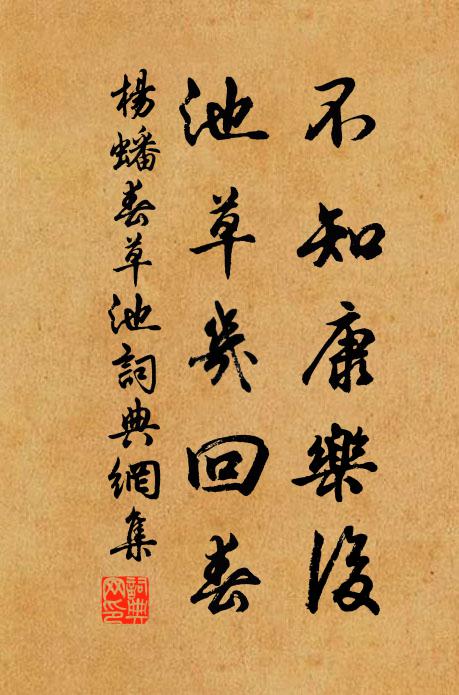 不知康樂後
池草幾回春
楊蟠春草池詞典網集
詞典網印